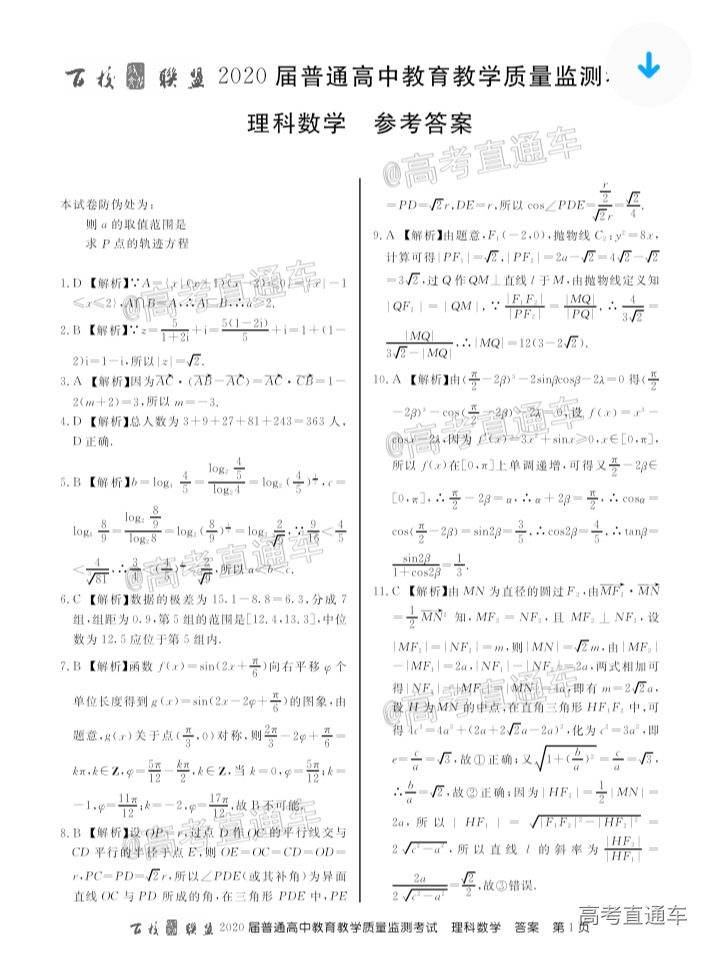 百校联盟 2020 届普通高中教育教学质量监测考
理科数学 参考答案
@高考直通车
本试卷防伪处为:
则 a 的取值范围是
求 P 点的轨迹方程
1. D 【解析】∵A={x|(x+1)(x-2)<0}={x|-1
<x<2}, A∩B=A, ∴A⊆B, ∴a≥2.
2. B 【解析】∵z=5/(1+2i)+i=5(1-2i)/5+i=1+(1-
2)i=1-i, 所以|z|=√2.
3. A 【解析】因为AC·(AB-AC)=AC·CB=1-
2(m+2)=3, 所以 m=-3.
4. D 【解析】总人数为 3+9+27+81+243=363 人,
D 正确.
5. B 【解析】b=log₄ 4/5=(log₂ 4/5)/(log₂4)=log₂(4/5)^(1/2), c=
log₈ 8/9=(log₂ 8/9)/(log₂8)=log₂(8/9)^(1/3)=log₂
所以 a<b<c.
6. C 【解析】数据的极差为 15.1-8.8=6.3, 分成 7
组, 组距为 0.9, 第 5 组的范围是[12.4,13.3], 中位
数为 12.5 应位于第 5 组内.
7. B 【解析】函数 f(x)=sin(2x+π/6)向右平移 φ 个
单位长度得到 g(x)=sin(2x-2φ+π/6)的图象, 由
题意, g(x)关于点(π/3,0)对称, 则2π/3-2φ+π/6=
kπ, k∈Z, φ=5π/12-kπ/2, k∈Z, 当 k=0, φ=5π/12; k=
-1, φ=11π/12; k=-2, φ=17π/12, 故 B 不可能.
8. B 【解析】设 OP=r, 过点 D 作 OC 的平行线交与
CD 平行的半径于点 E, 则 OE=OC=CD=OD=
r, PC=PD=√2r, 所以∠PDE(或其补角)为异面
直线 OC 与 PD 所成的角, 在三角形 PDE 中, PE
=PD=√2r, DE=r, 所以 cos∠PDE=(r/2)/(√2r)=√2/4.
9. A 【解析】由题意, F₁(-2,0), 抛物线 C₂: y²=8x,
计算可得|PF₁|=√2, |PF₂|=2a-√2=4√2-√2
=3√2, 过 Q 作 QM⊥直线 l 于 M, 由抛物线定义知
|QF₂|=|QM|, ∵|F₁F₂|/|PF₂|=|MQ|/|PQ|, ∴4/(3√2)=
|MQ|/(3√2-|MQ|), ∴|MQ|=12(3-2√2).
10. A 【解析】由(π/2-2β)³-2sinβcosβ-2λ=0 得(π/2
-2β)³-cos(π/2-2β)-2λ=0, 设 f(x)=x³-
cosx-2λ, 因为 f′(x)=3x²+sinx≥0, x∈[0,π],
所以 f(x)在[0,π]上单调递增, 可得又π/2-2β∈
[0,π], ∴π/2-2β=α, ∴α+2β=π/2, ∴cosα=
cos(π/2-2β)=sin2β=3/5, ∴cos2β=4/5, ∴tanβ=
sin2β/(1+cos2β)=1/3.
11. C 【解析】由 MN 为直径的圆过 F₂, 由MF₂·MN
=1/2 MN² 知, MF₂=NF₂, 且 MF₂⊥NF₂, 设
|MF₂|=|NF₂|=m, 则|MN|=√2m, 由|MF₂|
-|MF₁|=2a, |NF₁|-|NF₂|=2a, 两式相加可
得|NF₁|-|MF₁|=|MN|=4a, 即有 m=2√2a,
设 H 为 MN 的中点, 在直角三角形 HF₁F₂ 中, 可
得 4c²=4a²+(2a+2√2a-2a)², 化为 c²=3a², 即
e=c/a=√3, 故①正确; 又√(1+(b/a)²)=c/a=√3,
∴b/a=√2, 故②正确; 因为|HF₂|=1/2|MN|=
2a, 所以|HF₁|=√(|F₁F₂|²-|HF₂|²)=
2√(c²-a²), 所以直线 l 的斜率为|HF₂|/|HF₁|=
2a/(2√(c²-a²))=√2/2, 故③错误.
百校联盟 2020 届普通高中教育教学质量监测考试 理科数学 答案 第 1 页
高考直通车